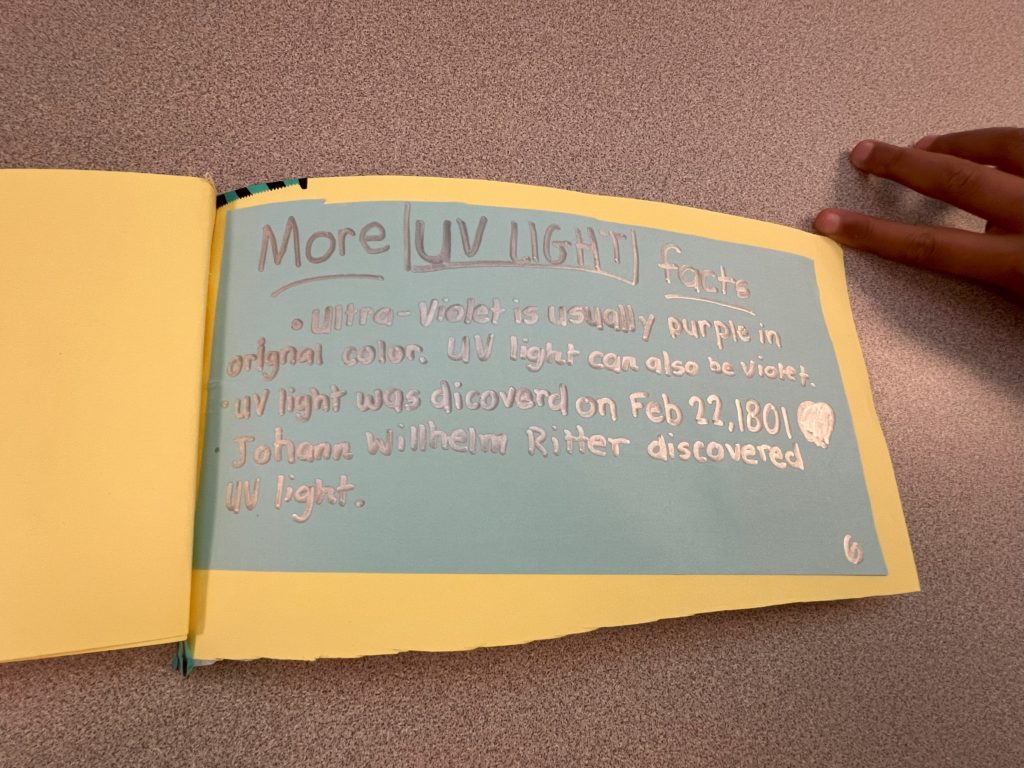 More UV LIGHT facts
• Ultra-Violet is usually purple in
orignal color. UV light can also be violet.
• UV light was dicoverd on Feb 22, 1801
Johann Willhelm Ritter discovered
UV light.
6